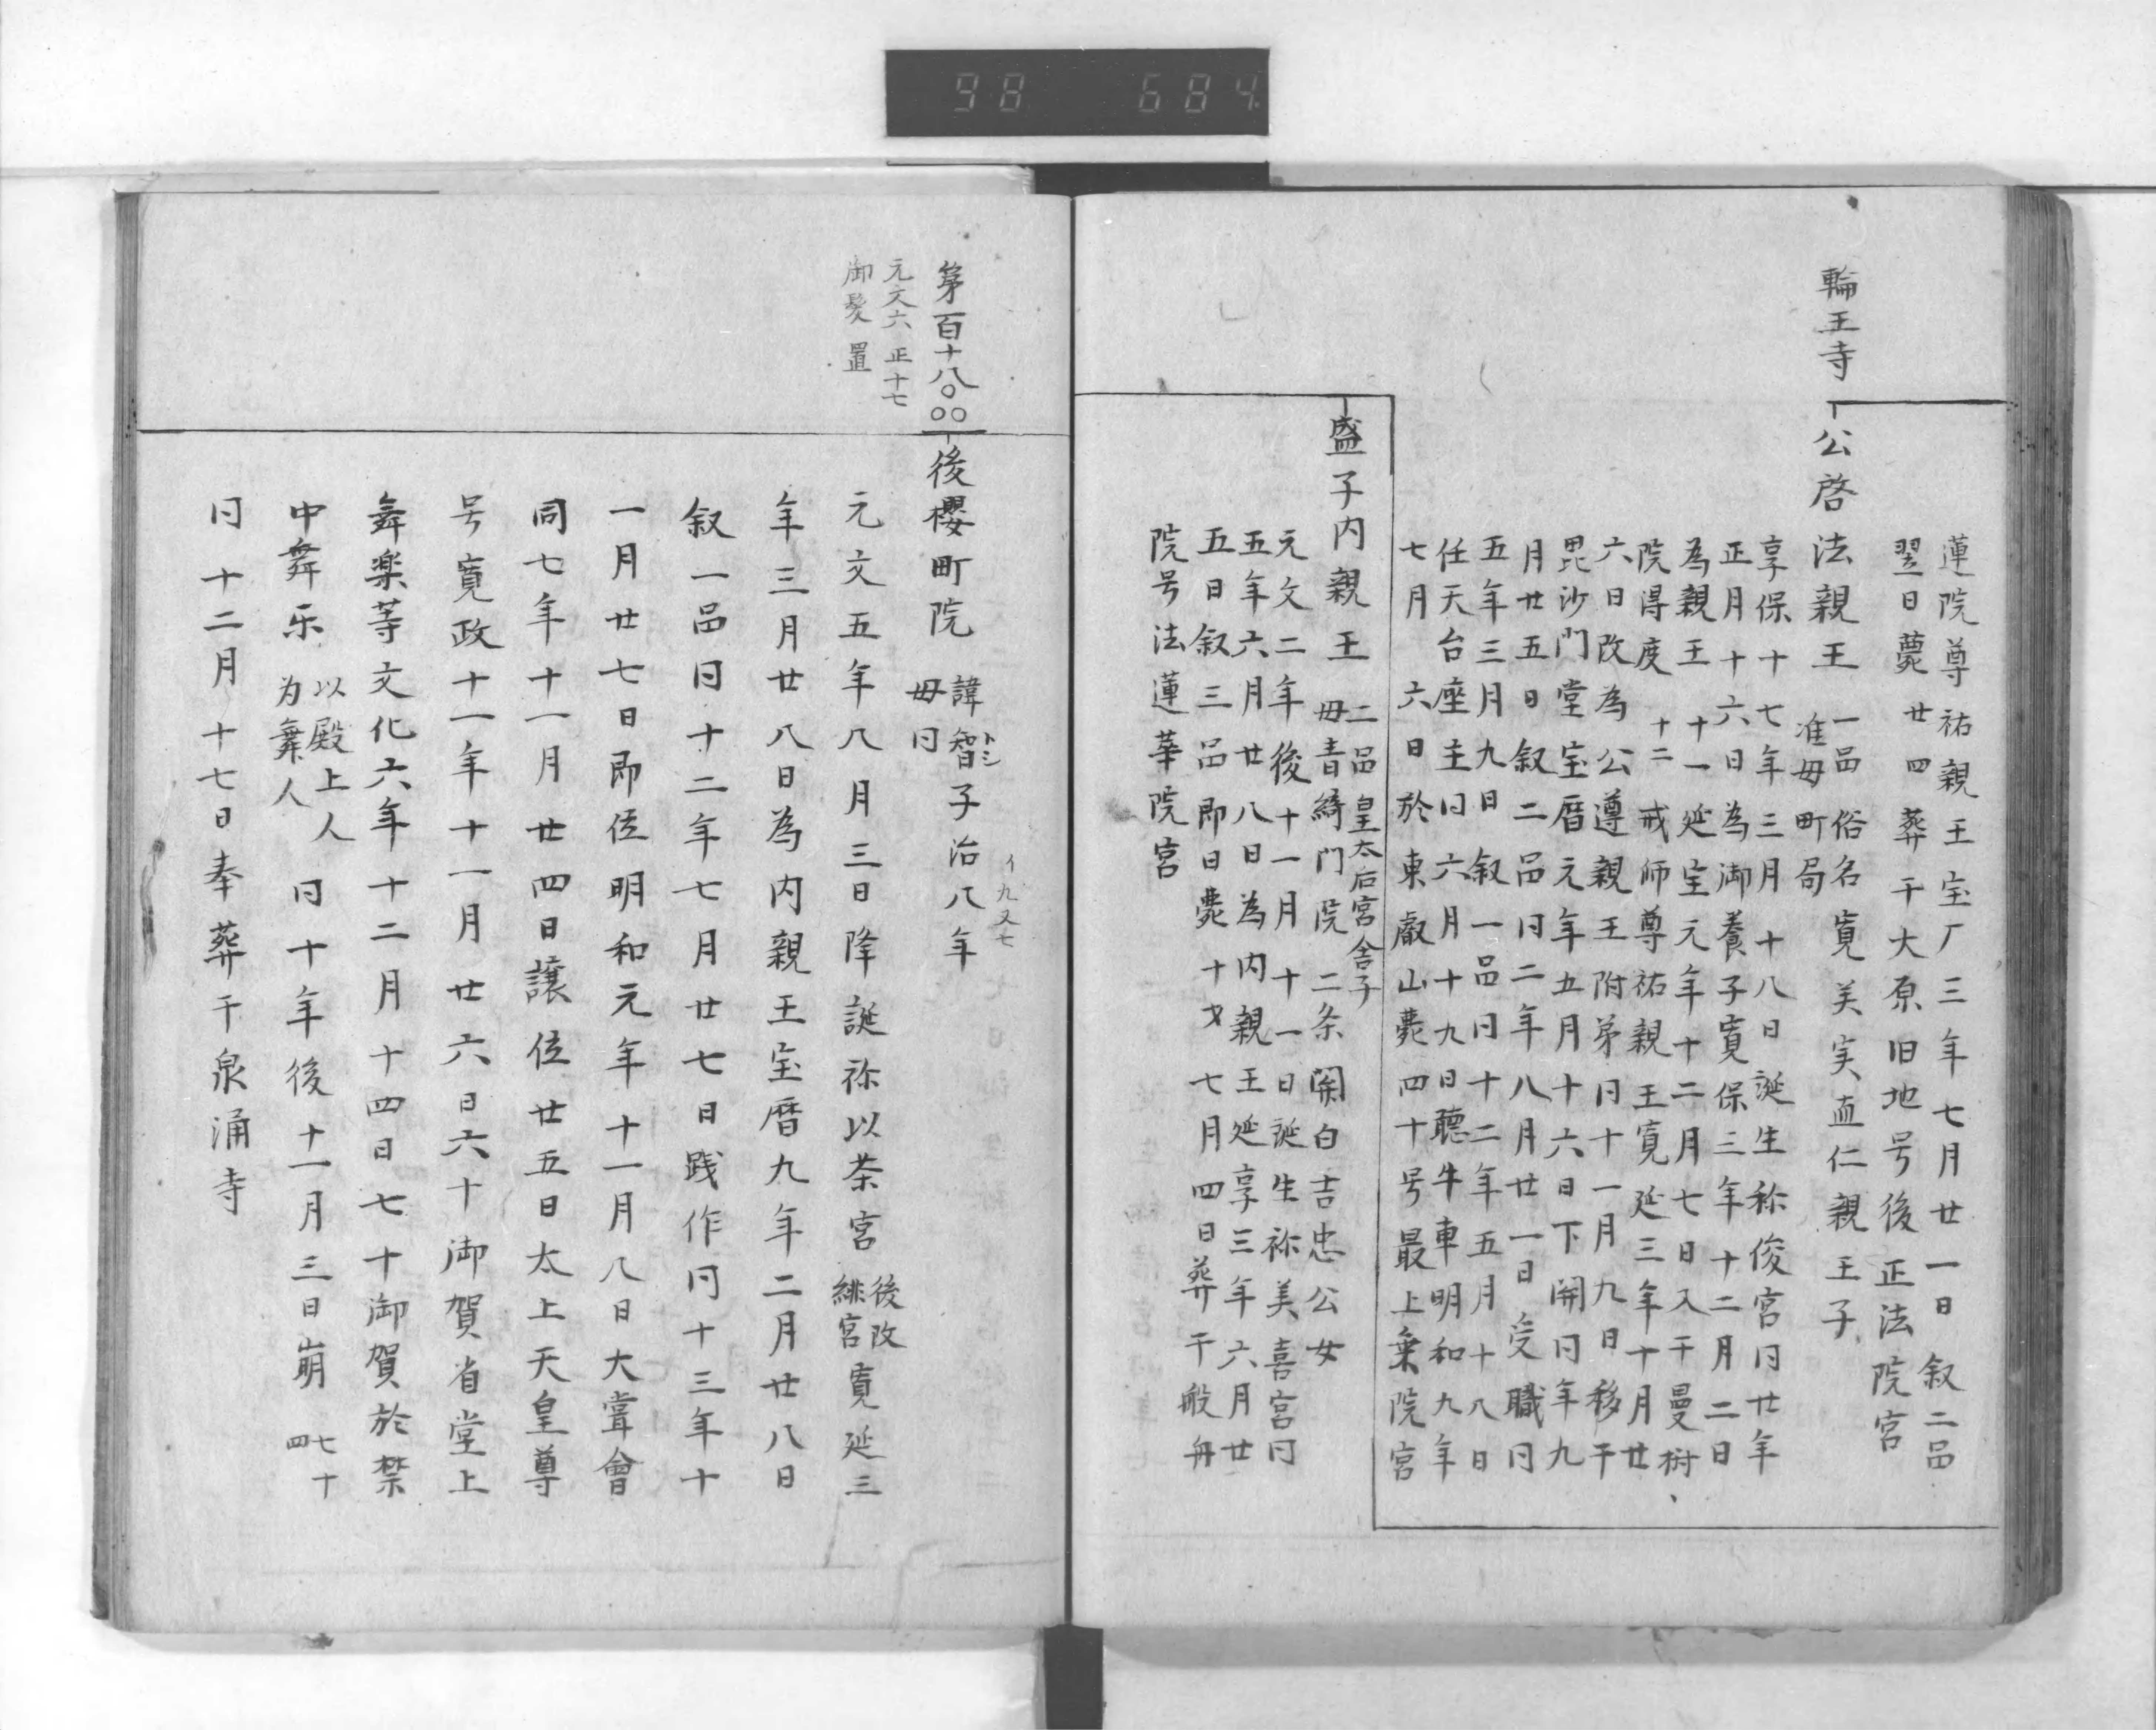 98 684
蓮院尊祐親王宝厂三年七月廿一日叙二品
翌日薨廿四葬干大原旧地号後正法院宮
輪王寺
公啓法親王 一品 俗名寛美実直仁親王子
准母町局
享保十七年三月十八日誕生称俊宮同廿年
正月十六日為御養子寛保三年十二月二日
為親王十一延宝元年十二月七日入干曼樹
院得度十二戒師尊祐親王寛延三年十月廿
六日改為公遵親王附弟同十一月九日移干
毘沙門堂宝暦元年五月十六日下開同年九
月廿五日叙二品同二年八月廿一日受職同
五年三月九日叙一品同十二年五月十八日
任天台座主同六月十九日聴牛車明和九年
七月六日於東叡山薨四十号最上乗院宮
盛子内親王 二品 皇太后宮舎子
母青綺門院二条関白吉忠公女
元文二年後十一月十一日誕生祢美喜宮同
五年六月廿八日為内親王延享三年六月廿
五日叙三品即日薨十才七月四日葬干般舟
院号法蓮華院宮
第百十八〇〇〇
元文六 正十七
御髪置
後櫻町院 諱智子治八年
トシ
イ九又七
母同
元文五年八月三日降誕祢以茶宮 後改 緋宮 寛延三
年三月廿八日為内親王宝暦九年二月廿八日
叙一品同十二年七月廿七日践作同十三年十
一月廿七日即位明和元年十一月八日大嘗會
同七年十一月廿四日譲位廿五日太上天皇尊
号寛政十一年十一月廿六日六十御賀省堂上
舞楽等文化六年十二月十四日七十御賀於禁
中舞乐 以殿上人 为舞人 同十年後十一月三日崩 七十四
同十二月十七日奉葬干泉涌寺